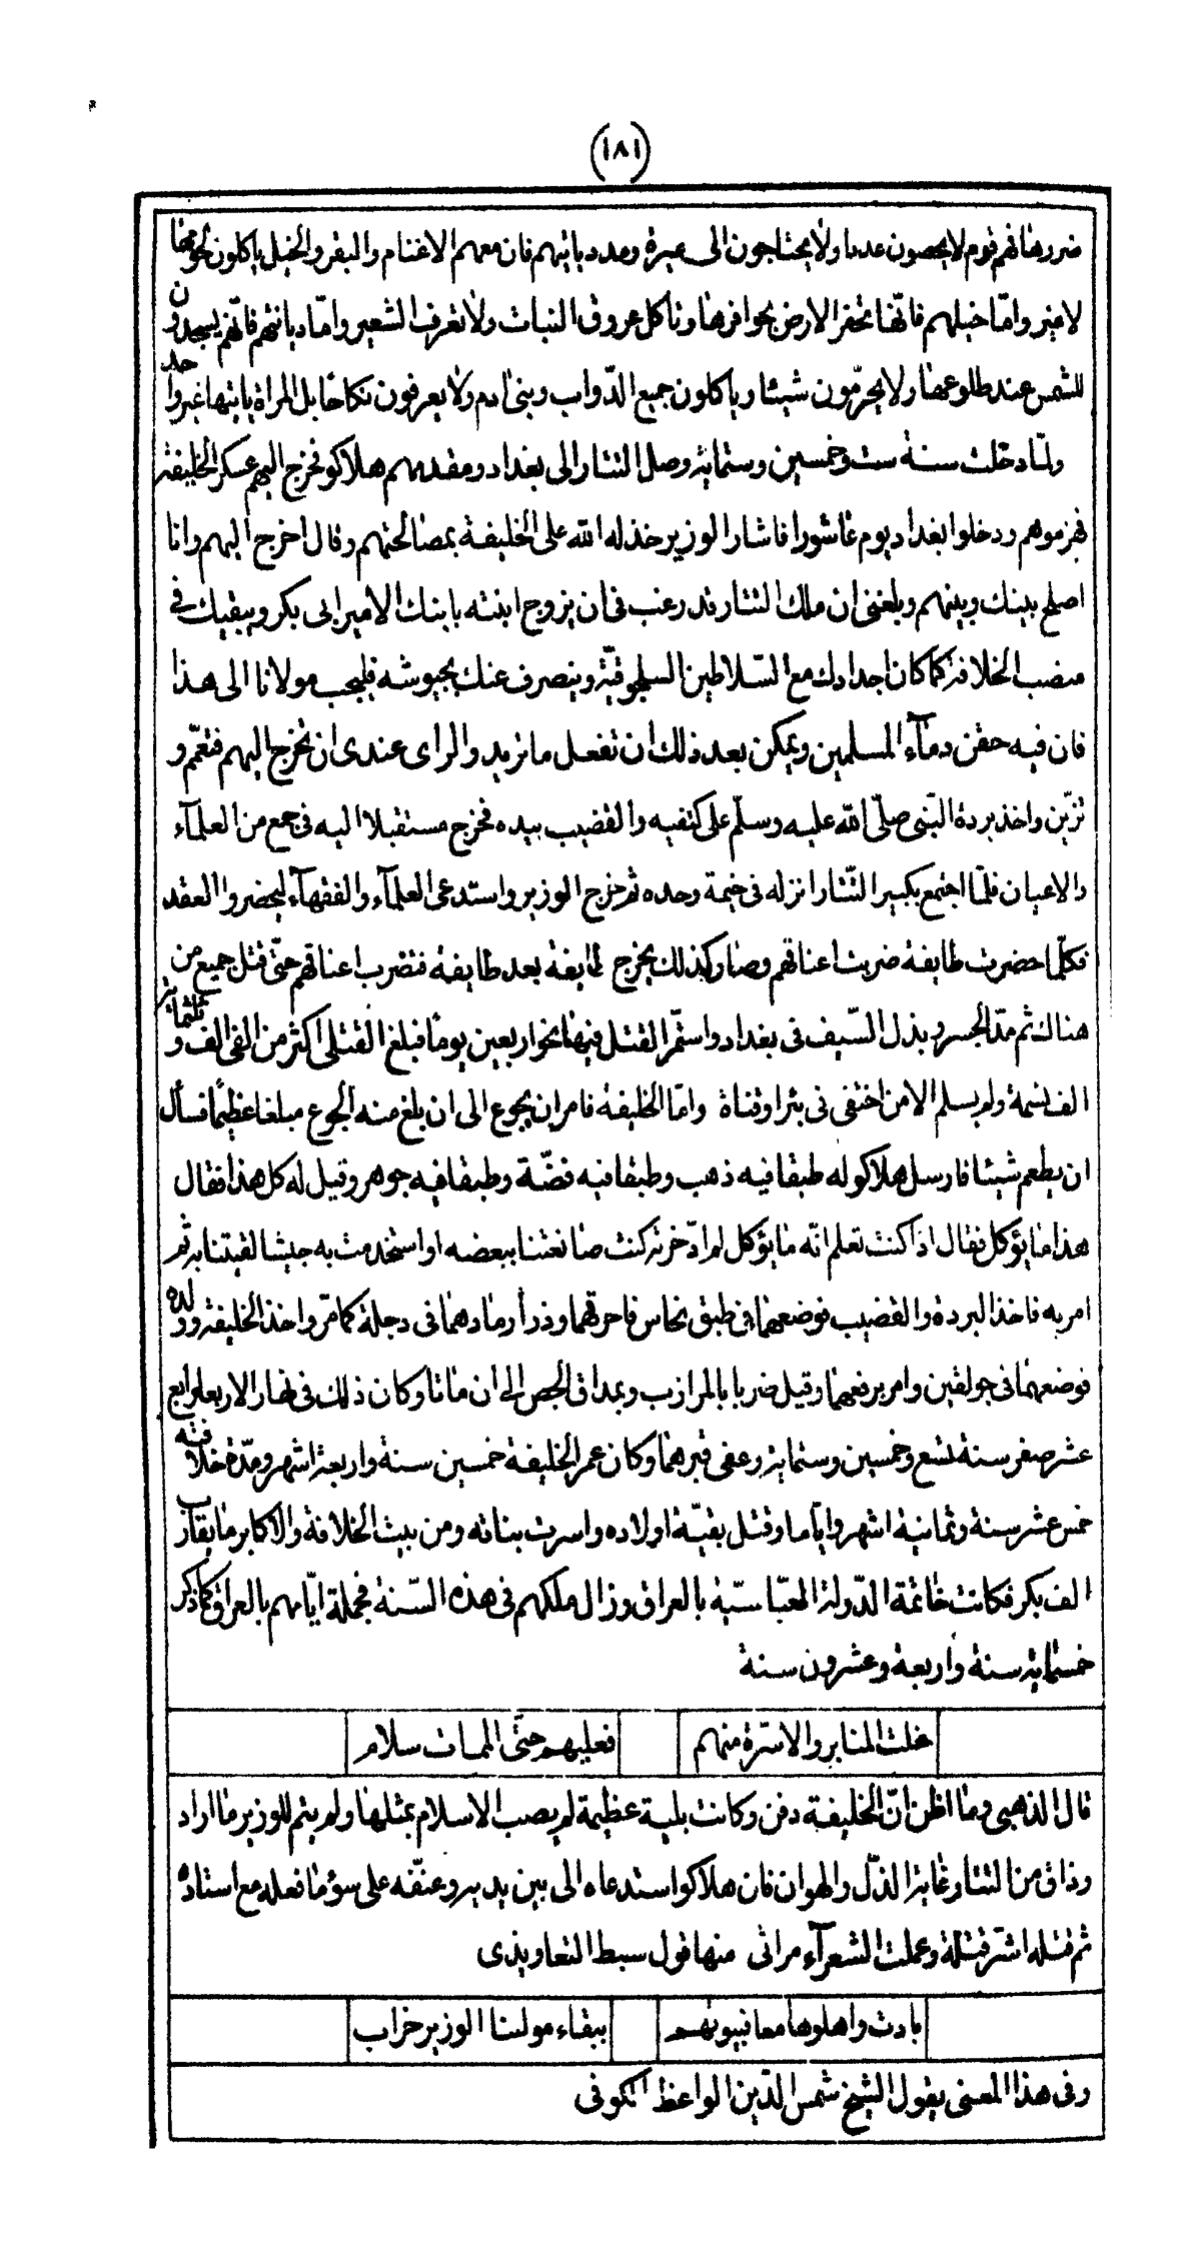 (١٨١)
ضررهنا فهم قوم لا يحصون عددا ولا يحتاجون الى ميرة ومدد ياتيهم فان معهم الاغنام والبقر والخيل ياكلون لحومها
لا غير واما خيلهم فانها تحفر الارض بحوافرها وتاكل عروق النبات ولا تعرف الشعير واما ديانتهم فانهم يسجدون
للشمس عند طلوعها ولا يحرمون شيئا وياكلون جميع الدواب وبنى ادم ولا يعرفون نكاحا بل المراة ياتيها غير واحد
ولما دخلت سنة ست وخمسين وستماية وصل التتار الى بغداد ومقدمهم هلاكو فخرج اليهم عسكر الخليفة
فهزموهم ودخلوا بغداد يوم عاشورا فاشار الوزير خذله الله على الخليفة بمصالحتهم وقال اخرج اليهم وانا
اصلح بينك وبينهم وبلغنى ان ملك التتار قد رغب فى ان يزوج ابنته بابنك الامير ابى بكر ويبقيك فى
منصب الخلافة كما كان اجدادك مع السلاطين السلجوقية وينصرف عنك بجيوشه فليجب مولانا الى هذا
فان فيه حقن دمآء المسلمين ويمكن بعد ذلك ان تفعل ما تريد والراى عندى ان تخرج اليهم فتعمّم و
تزيّن واخذ بردة النبى صلّى الله عليه وسلّم على كتفيه والقضيب بيده فخرج مستقبلا اليه فى جمع من العلمآء
والاعيان فلما اجتمع بكبير التتار انزله فى خيمة وحده ثم خرج الوزير واستدعى العلمآء والفقهآء ليحضروا العقد
فكلما حضرت طايفة ضربت اعناقهم وصار كذلك يخرج طايفة بعد طايفة فتضرب اعناقهم حتّى قتل جميع من
هناك ثم مدّ الجسر وبذل السّيف فى بغداد واستمّر القتل فيها نحو اربعين يوما فبلغ القتلى اكثر من الفى الف و ثلثماية
الف نسمة ولم يسلم الا من اختفى فى بئر او قناة واما الخليفة فامر ان يجوع الى ان بلغ منه الجوع مبلغا عظيما فسأل
ان يطعم شيئا فارسل هلاكو له طبقا فيه ذهب وطبقا فيه فضّة وطبقا فيه جوهر وقيل له كل هذا فقال
هذا ما يؤكل فقال اذا كنت تعلم انّه ما يؤكل لم ادّخرته كنت صانعتنا ببعضه او استخدمت به جيشا لقيتنا به ثم
امر به فاخذ البردة والقضيب فوضعهما فى طبق نحاس فاحرقهما وذرأ رمادهما فى دجلة كما مرّ واخذ الخليفة وولده
فوضعهما فى جولقين وامر برفعهما وقيل ضربا بالمرازب وبمداق الجص الى ان ماتا وكان ذلك فى نهار الاربعا رابع
عشر صفر سنة تسع وخمسين وستماية وعفى قبرهما وكان عمر الخليفة خمسين سنة واربعة اشهر ومدّة خلافته
خمس عشر سنة وثمانية اشهر واياما وقتل بقيّة اولاده واسرت بناته ومن بيت الخلافة والاكابر ما يقارب
الف بكر فكانت خاتمة الدّولة العبّاسيّة بالعراق وزال ملكهم فى هذه السّنة فجملة ايّامهم بالعراق كما ذكر
خمسماية سنة واربعة وعشرون سنة
خلت المنابر والاسّرة منهم فعليهم حتّى الممات سلام
قال الذهبى وما اظن انّ الخليفة دفن وكانت بلية عظيمة لم يصب الاسلام بمثلها ولم يتم للوزير ما اراد
وذاق من التتار غاية الذّل والهوان فان هلاكو استدعاه الى بين يديه وعنّفه على سوء ما فعله مع استاذه
ثم قتله اشر قتلة وعملت الشعرآء مراثى منها قول سبط التعاويذى
بادت واهلوها معا فبيوتهم ببقاء مولنا الوزير خراب
وفى هذا المعنى يقول الشيخ شمس الدّين الواعظ الكوفى